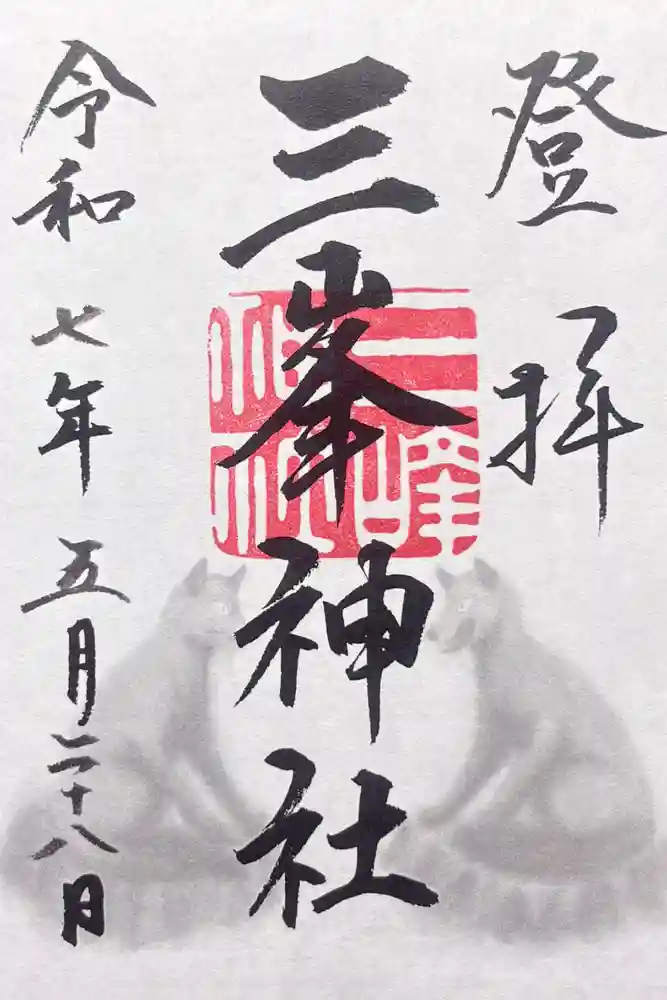 登拝
三峯神社
三峰神社
令和七年五月二十八日